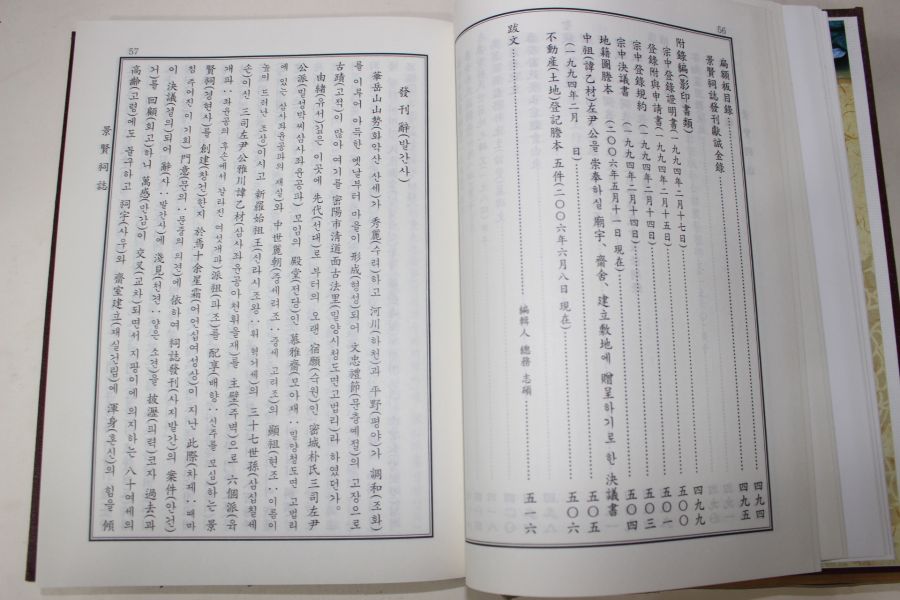 56
扁額板目錄 四九四
景賢祠誌發刊獻誠金錄 四九五
附錄編(影印書類) 四九九
宗中登錄證明書(一九九四年二月十七日) 五〇〇
登錄附與申請書(一九九四年二月十五日) 五〇一
宗中登錄規約(一九九四年二月十四日) 五〇三
宗中決議書(一九九四年二月十四日) 五〇四
地籍圖謄本(二〇〇六年五月十一日 現在) 五〇五
中祖(諱乙材)左尹公을 崇奉하실 廟宇、齋舍、建立敷地에 贈呈하기로 한 決議書
(一九九四年二月 日) 五〇六
不動産(土地)登記謄本 五件(二〇〇六年六月八日 現在)
跋文 編輯人 總務 志碩 五一六
57
發刊辭(발간사)
華岳山山勢(화악산 산세)가 秀麗(수려)하고 河川(하천)과 平野(평야)가 調和(조화)
를 이루어 아득한 옛날부터 마을이 形成(형성)되어 文忠禮節(문충예절)의 고장으로
古蹟(고적)이 많아 여기를 密陽市淸道面古法里(밀양시청도면고법리)라 하였던가.
由緖(유서)깊은 이곳에 先代(선대)로 부터의 오랜 宿願(숙원)인 密城朴氏三司左尹
公派(밀성박씨삼사좌윤공파) 모임의 殿堂(전당)인 慕雅齋(모아재:밀양청도면 고법리
에 있는 삼사좌윤공파의 재실)와 中世麗朝(중세려조:중세 고려조)의 顯祖(현조:이름이
높이 드러난 조상)이시고 新羅始祖王(신라시조왕:휘 혁거세)의 三十七世孫(삼십칠세
손)이신 三司左尹公雅川諱乙材(삼사좌윤공아천휘을재)를 主壁(주벽)으로 六個派(육
개파:좌윤공의 후손에서 갈라진 여섯개파)派祖(파조)를 配享(배향:선주를 모심)하는 景
賢祠(경현사)를 創建(창건)한지 於焉十余星霜(어언십여성상)이 지난 此際(차제:때마
침 주어진 이 기회) 門意(문의:문중의 의견)에 依하여 祠誌發刊(사지발간)의 案件(안건)
이 決議(결의)되어 辭(사:발간사)에 淺見(천견:얕은 소견)을 披瀝(피력)코자 過去(과
거)를 回顧(회고)하니 萬感(만감)이 交叉(교차)되면서 지팡이에 의지하는 八十여세의
高齡(고령)에도 불구하고 祠宇(사우)와 齋室建立(재실건립)에 渾身(혼신)의 힘을 傾
景賢祠誌